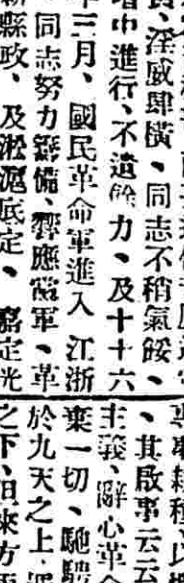 淫威肆橫、同志不稍氣餒、
中進行、不遺餘力、及十十六
三月、國民革命軍進入 江浙
同志努力籌備、響應黨軍、革
縣政、及淞滬底定、嘉定光
、其啟事云云
主義、辭心革命
棄一切、馳騁
於九天之上、
之下、但來方